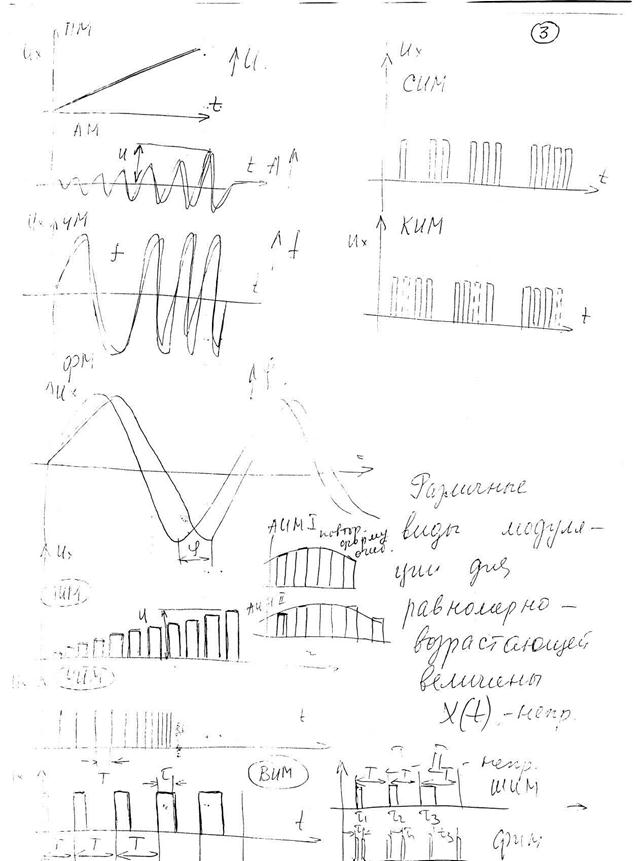 ПМ
3
Ux
↑U
t
АМ
U
t
A↑
Ux ЧМ
f
↑f
t
ФМ
Ux
φ
Ux
СИМ
t
Ux
КИМ
t
Различные
виды модуля-
ции для
равномерно-
возрастающей
величины
X(t) - непр.
АИМ I
повтор.
форму
АИМ II
Ux
U
t
T
T
τ
ВИМ
t
T
T
T
T
T
II - непр.
ШИМ
τ1
τ2
τ3
ФИМ